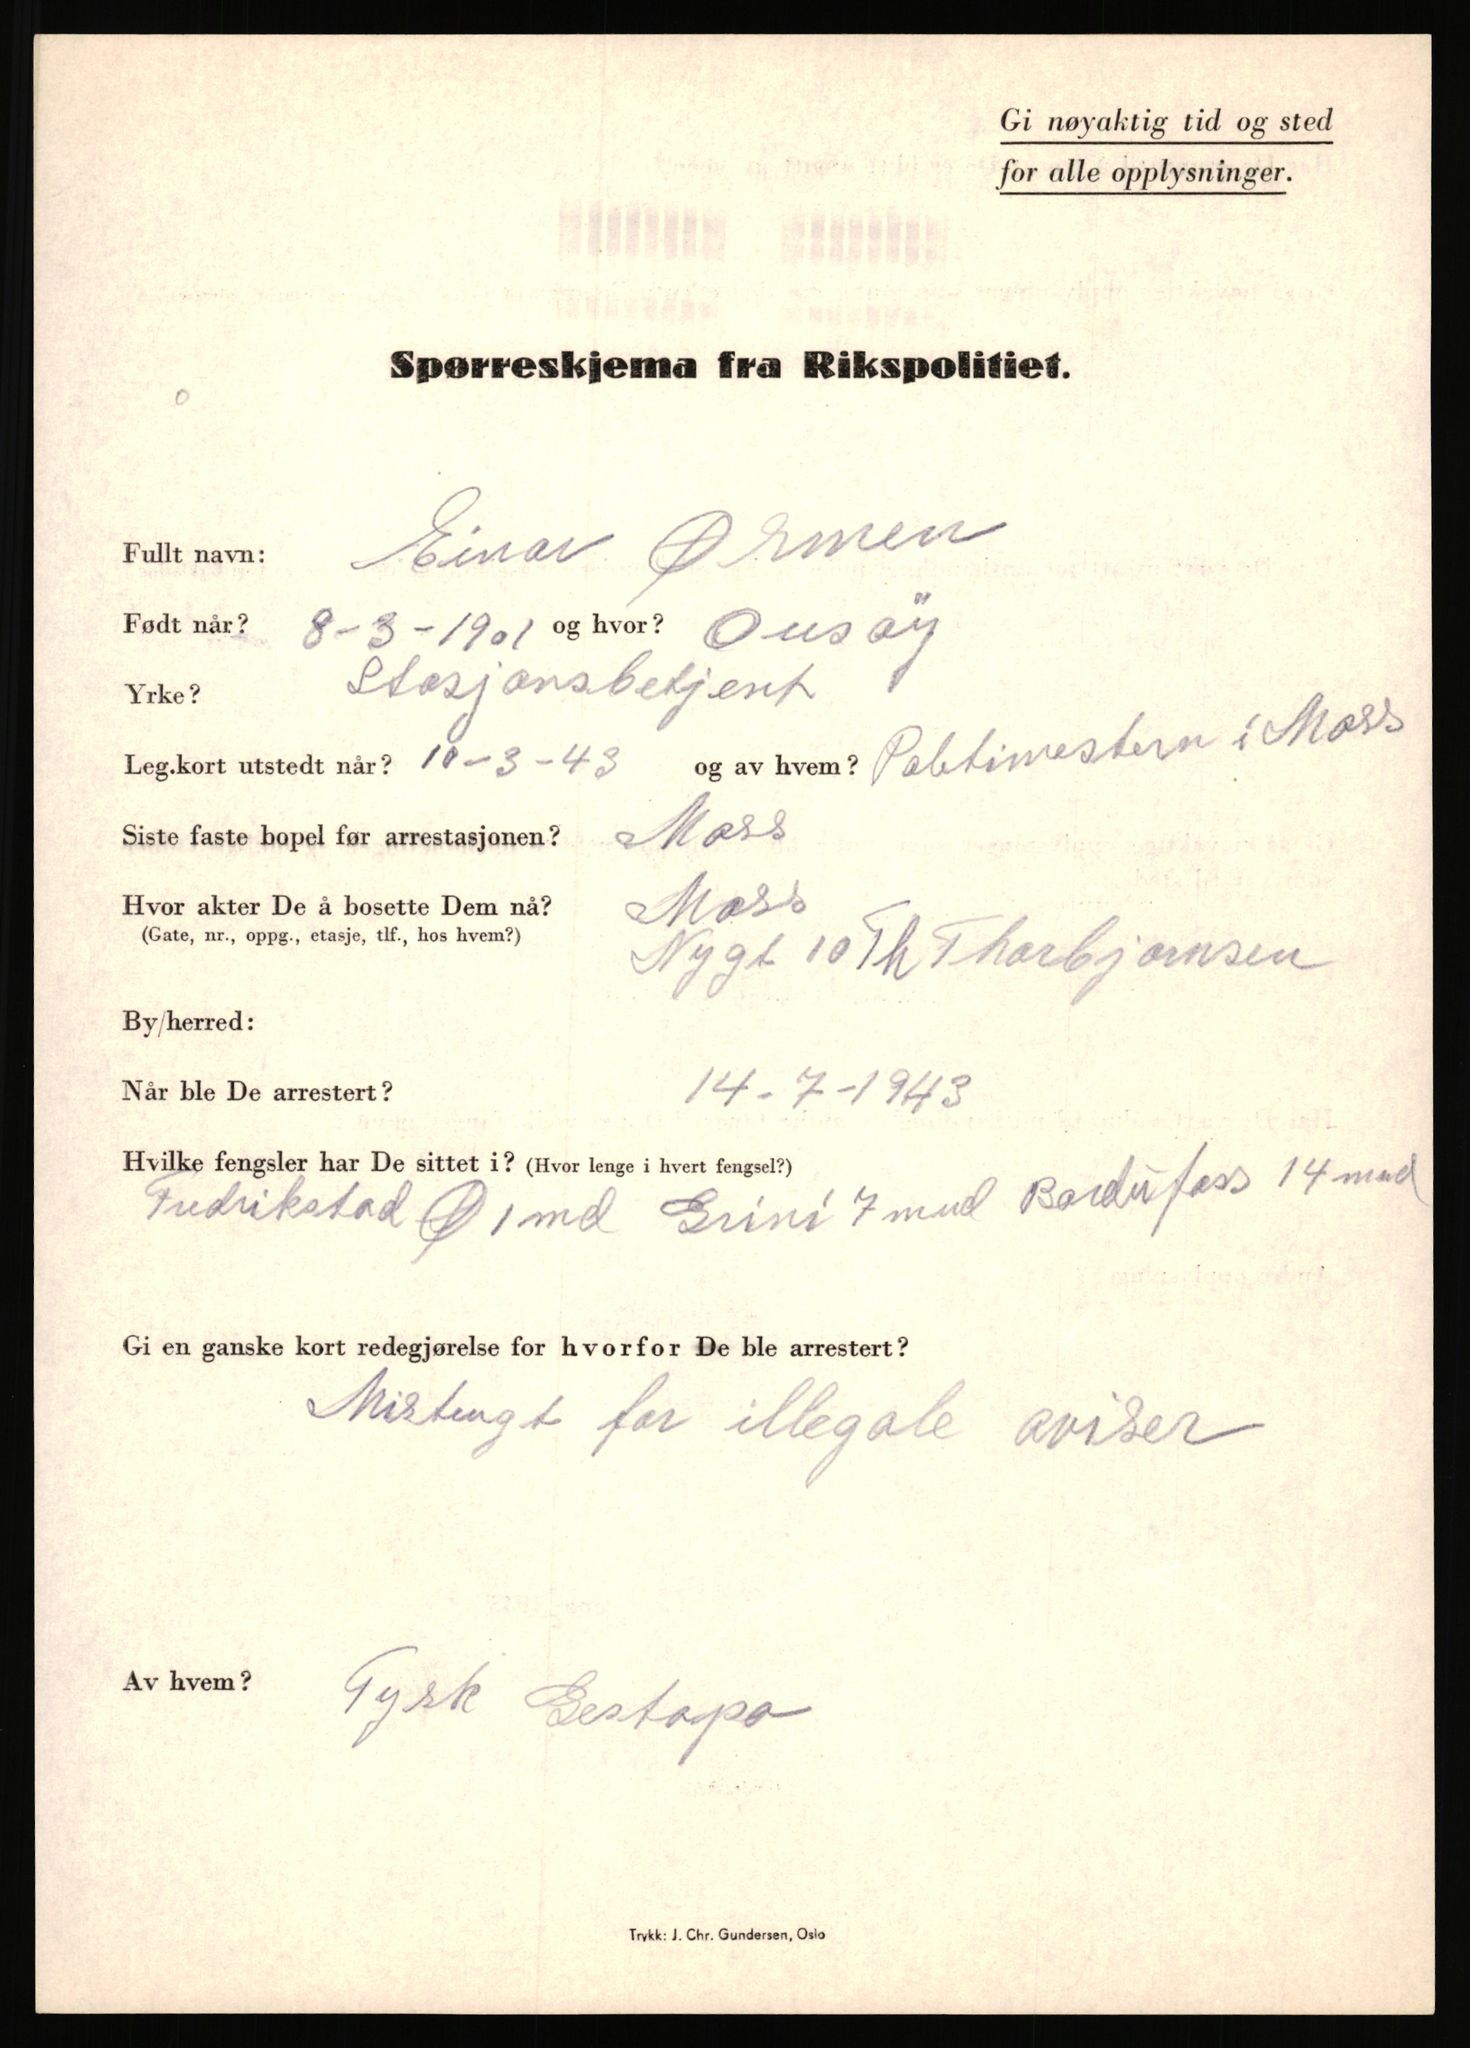 Gi nøyaktig tid og sted
for alle opplysninger.
Spørreskjema fra Rikspolitiet.
Fullt navn: Einar Ørmen
Født når? 8-3-1901 og hvor? Onsöy
Yrke? Stasjonsbetjent
Leg.kort utstedt når? 10-3-43 og av hvem? Politimestern i Moss
Siste faste bopel før arrestasjonen? Moss
Hvor akter De å bosette Dem nå? Moss
(Gate, nr., oppg., etasje, tlf., hos hvem?) Nygt 10 Th Thorbjørnsen
By/herred:
Når ble De arrestert? 14-7-1943
Hvilke fengsler har De sittet i? (Hvor lenge i hvert fengsel?)
Fredrikstad Ø 1 md Grini 7 mnd Bardufoss 14 mnd
Gi en ganske kort redegjørelse for hvorfor De ble arrestert?
Mistengt for illegale aviser
Av hvem? Tysk Gestapo
Trykk: J. Chr. Gundersen, Oslo